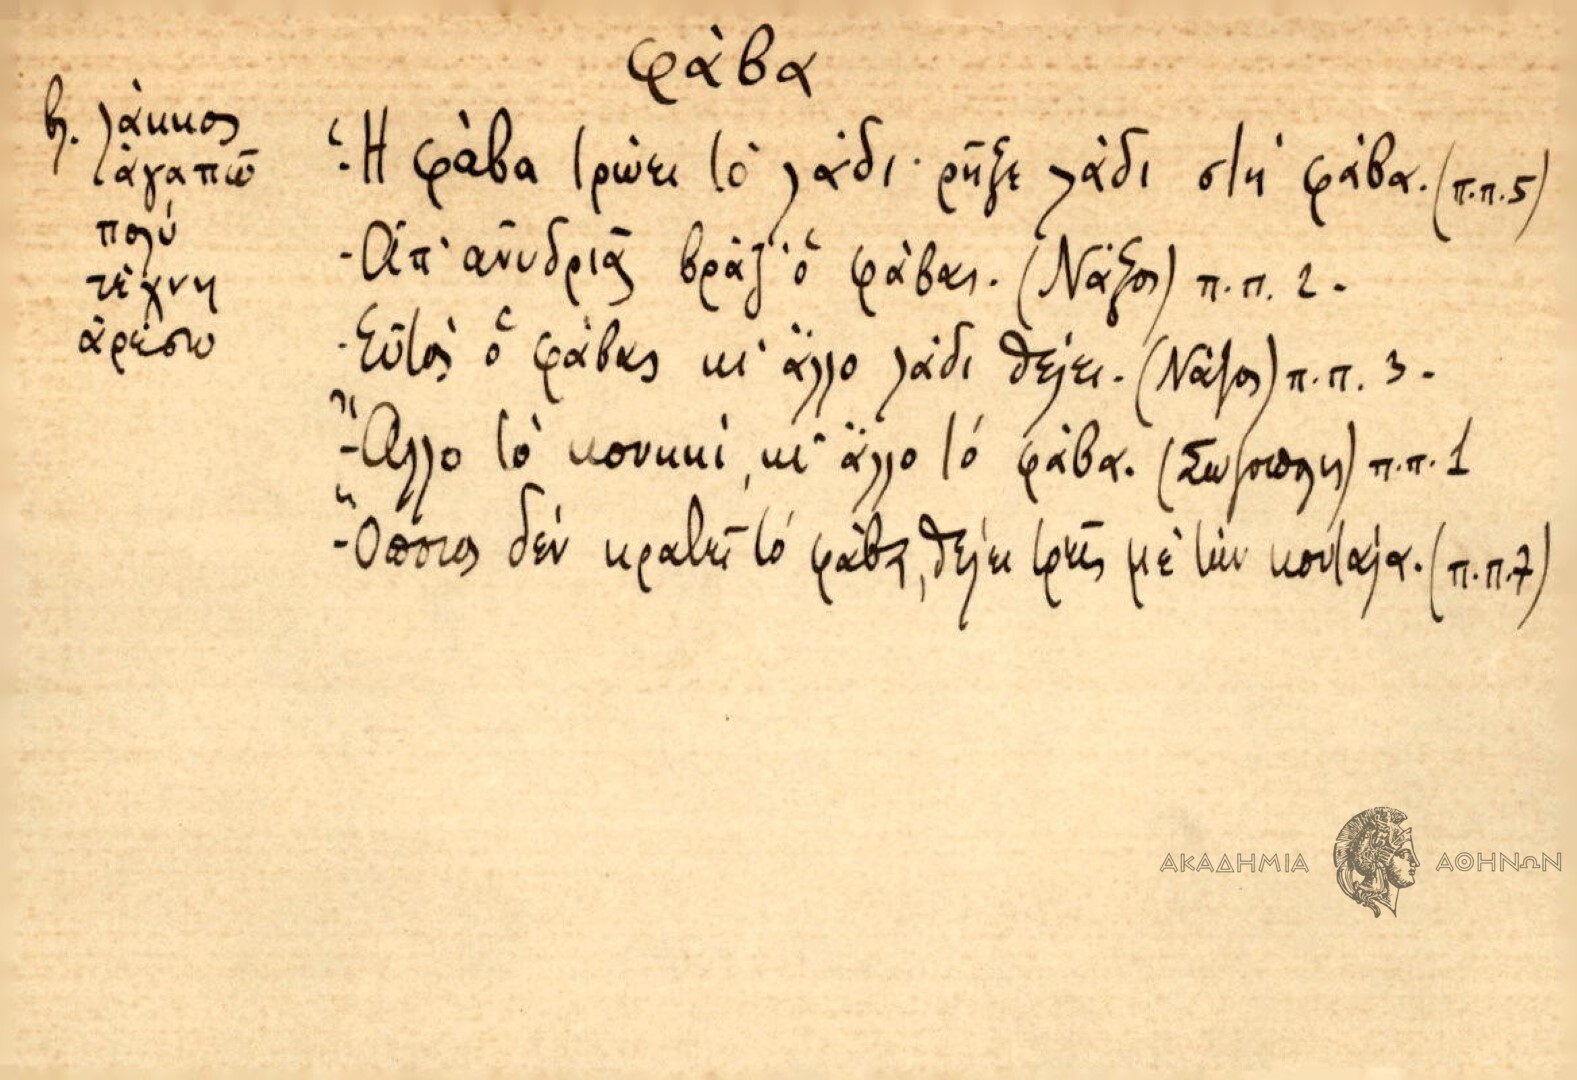 φάβα
βλ. λάκκος
ἀγαπῶ
πολύ
τέχνη
ἀρέσω
-Ἡ φάβα τρώει τὸ λάδι· ρῆξε λάδι στὴ φάβα. (π.π. 5)
-Ἀπ' ἀνυδριᾶς βράζ' ὁ φάβας. (Νάξος) π.π. 2.
-Εὐτὸς ὁ φάβας κι' ἄλλο λάδι θέλει. (Νάξος) π.π. 3.
-Ἄλλο τὸ κουκκί, κι' ἄλλο τό φάβα. (Σωζόπολις) π.π. 1
-Ὅποιος δέν κρατεῖ τό φάβα, θέλει τρεῖς μέ τήν κουτάλα. (π.π. 7)
ΑΚΑΔΗΜΙΑ ΑΘΗΝΩΝ